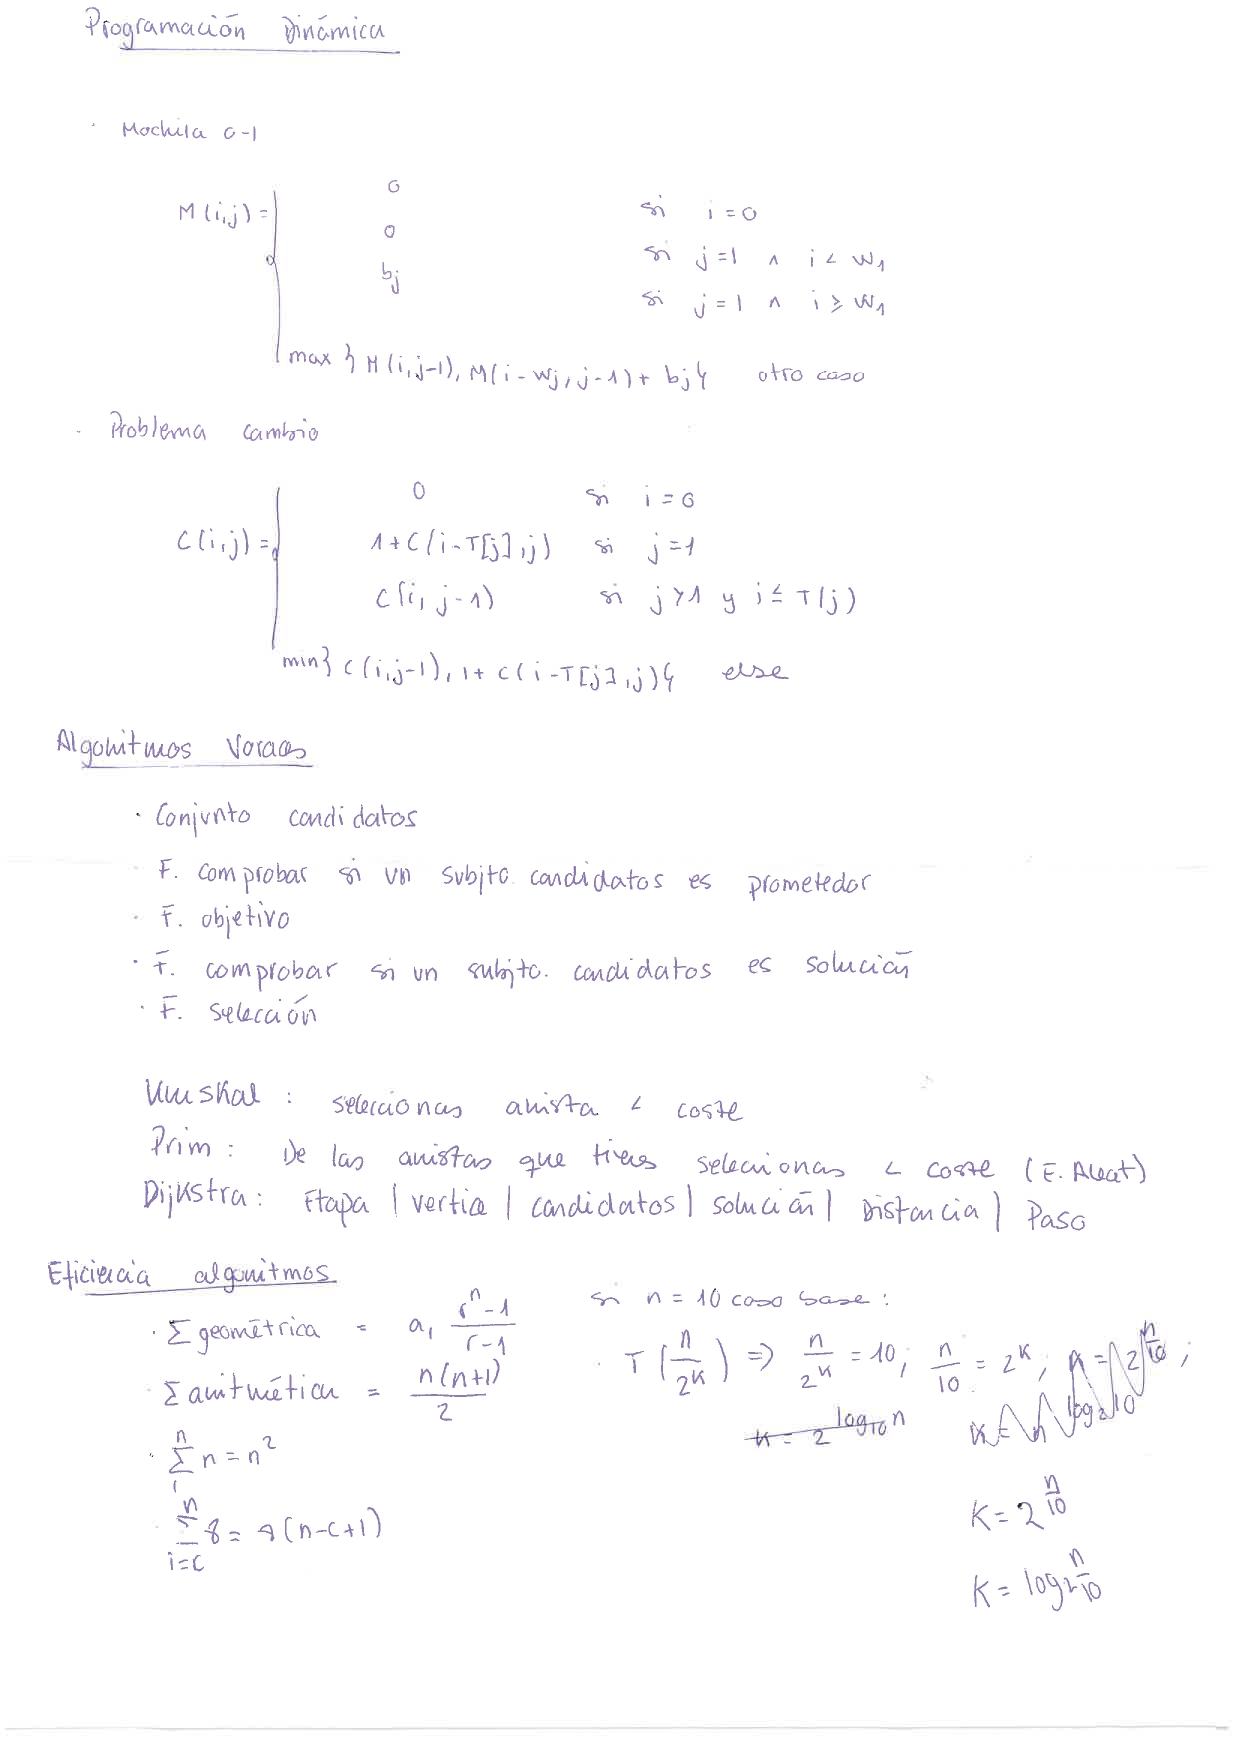 Programación Dinámica
· Mochila 0-1
M(i,j) =
0 si i=0
0 si j=1 ∧ i < w1
bj si j=1 ∧ i ≥ w1
max { M(i,j-1), M(i-wj, j-1) + bj } otro caso
· Problema cambio
C(i,j) =
0 si i=0
1+C(i-T[j],j) si j=1
C(i, j-1) si j>1 y i ≤ T(j)
min { C(i,j-1), 1+ C(i-T[j],j) } else
Algoritmos Voraces
· Conjunto candidatos
F. comprobar si un subjto. candidatos es prometedor
· F. objetivo
· F. comprobar si un subjto. candidatos es solución
· F. selección
Kruskal : seleccionas arista < coste
Prim : De las aristas que tienes seleccionas < coste (E. Aleat)
Dijkstra : Etapa | vertice | candidatos | solución | Distancia | Paso
Eficiencia algoritmos
· Σ geométrica = a1 (r^n - 1)/(r-1)
· Σ aritmética = n(n+1)/2
· Σ_1^n n = n^2
· Σ_{i=c}^n 8 = 8(n-c+1)
si n = 10 caso base :
· T(n/2^k) => n/2^k = 10; n/10 = 2^k;
k = 2^{log10 n}
K = 2^{n/10}
K = log2 n/10